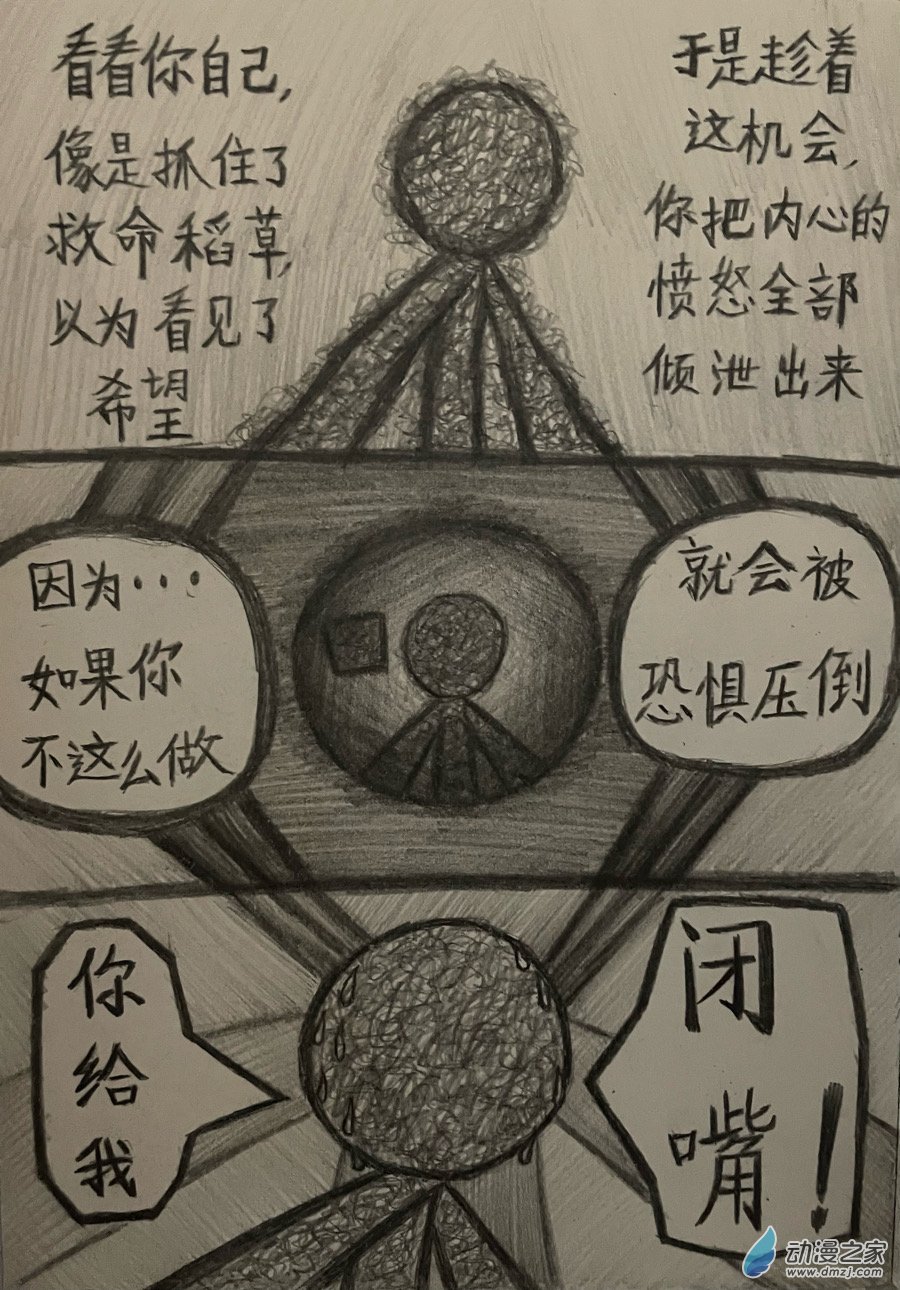 看看你自己,
像是抓住了
救命稻草,
以为看见了
希望
于是趁着
这机会,
你把内心的
愤怒全部
倾泄出来
因为···
如果你
不这么做
就会被
恐惧压倒
你
给
我
闭
嘴!
动漫之家
www.dmzj.com